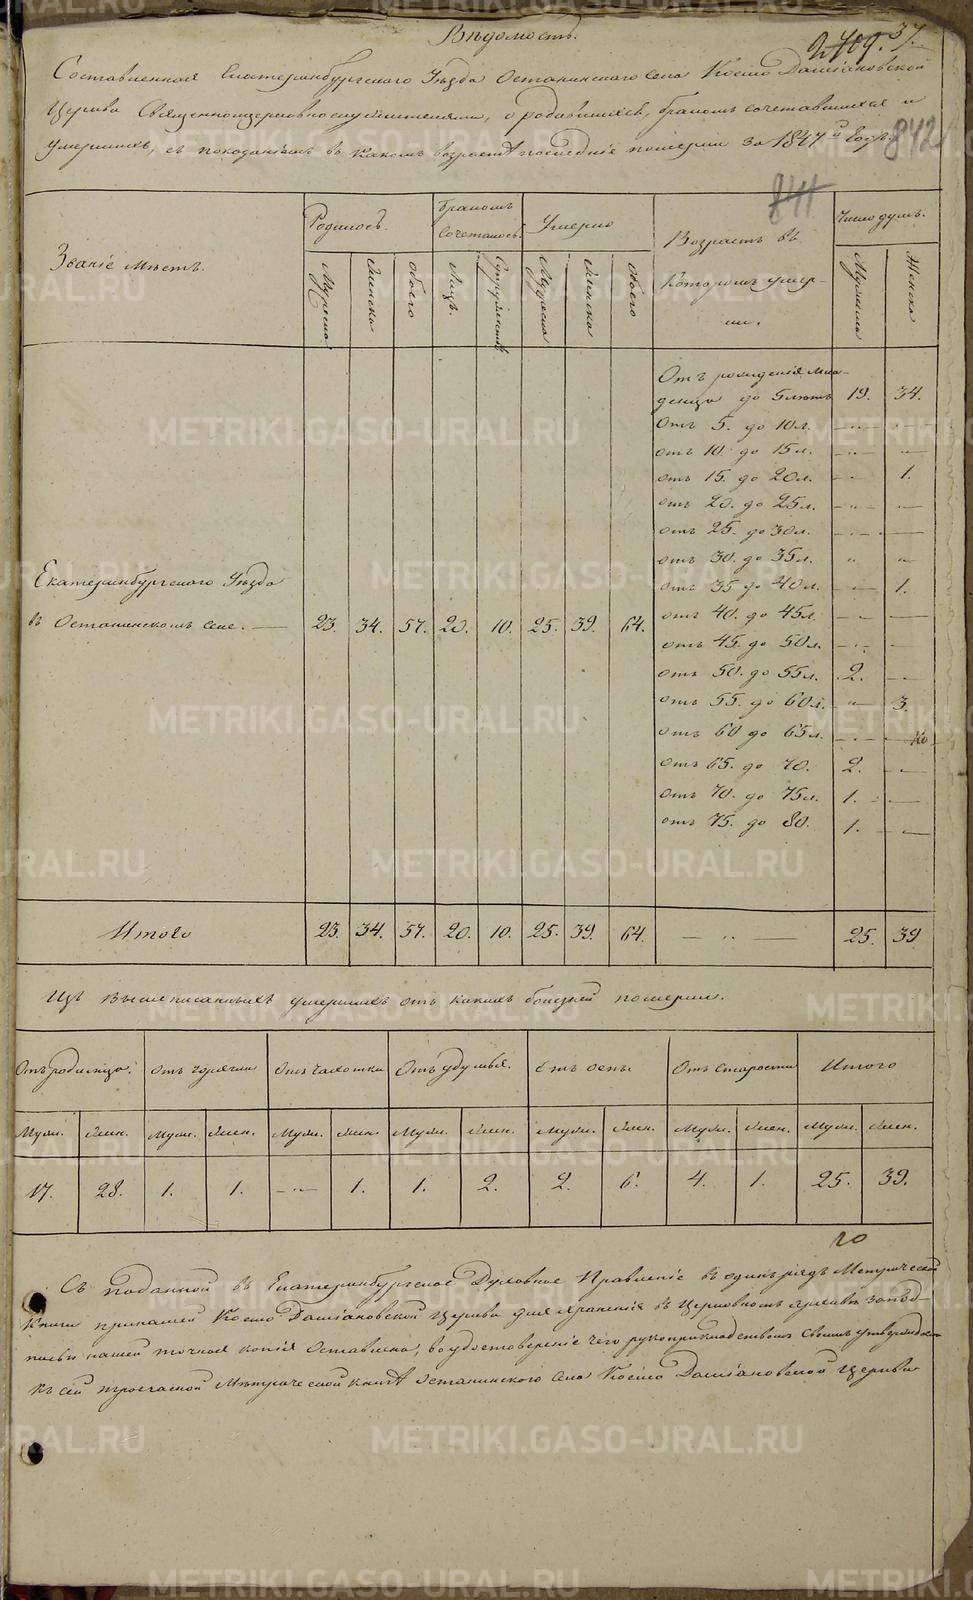 Вѣдомость.
2409. 37.
Составленная Екатеринбургскаго Уѣзда Останинскаго Села Космо Даміановской
Церкви Священноцерковнослужителями, о родившихся, бракомъ сочетавшихся и
умершихъ, съ показаніемъ въ какомъ возрастѣ послѣдніе померли за 1847й Годъ.
842
841
Званіе мѣстъ.
Родилось.
Бракомъ сочеталось.
Умерло
Возрастъ въ
которомъ умер-
ли.
Число душъ.
Мужеска Женска обоего Лицъ. Супружествъ Мужеска Женска Обоего Мужеска Женска
Отъ рожденія мла-
денца до 5 лѣтъ 19. 34.
Отъ 5. до 10 л. — " — — " —
отъ 10. до 15 л. — " — — " —
отъ 15. до 20 л. — " — 1.
отъ 20. до 25 л. — " — — " —
отъ 25. до 30 л. — " — —
отъ 30. до 35 л. " "
отъ 35 до 40 л. — " — 1.
отъ 40. до 45 л. — " — —
отъ 45. до 50 л. — " — —
отъ 50. до 55 л. 2. —
отъ 55. до 60 л. — " — 3.
отъ 60 до 65 л. — " — —
отъ 65. до 70. 2. —
отъ 70. до 75 л. 1. —
отъ 75. до 80. 1. —
Екатеринбургскаго Уѣзда
въ Останинскомъ Селе. — 23. 34. 57. 20. 10. 25. 39. 64.
Итого 23. 34. 57. 20. 10. 25. 39. 64. — " — 25. 39
Изъ вышеписанныхъ умершихъ отъ какихъ болезней померли.
Отъ родимца. отъ горячки отъ чахотки Отъ удушья. отъ оспы Отъ старости Итого
Муж. Жен. Муж. Жен. Муж. Жен. Муж. Жен. Муж. Жен. Муж. Жен. Муж. Жен.
17. 28. 1. 1. — " — 1. 1. 2. 2. 6. 4. 1. 25. 39.
Съ поданной въ Екатеринбургское Духовное Правленіе въ одинъ рядъ Метрической
Книги при нашей Космо Даміановской Церкви для храненія въ Церковномъ архивѣ за под-
писью нашей точная копія Оставлена, во удостовереніе чего рукоприкладствомъ своимъ утверждаемъ
къ сей троечасной Метрической книгѣ Останинскаго Села Космо Даміановской Церкви
METRIKI.GASO-URAL.RU